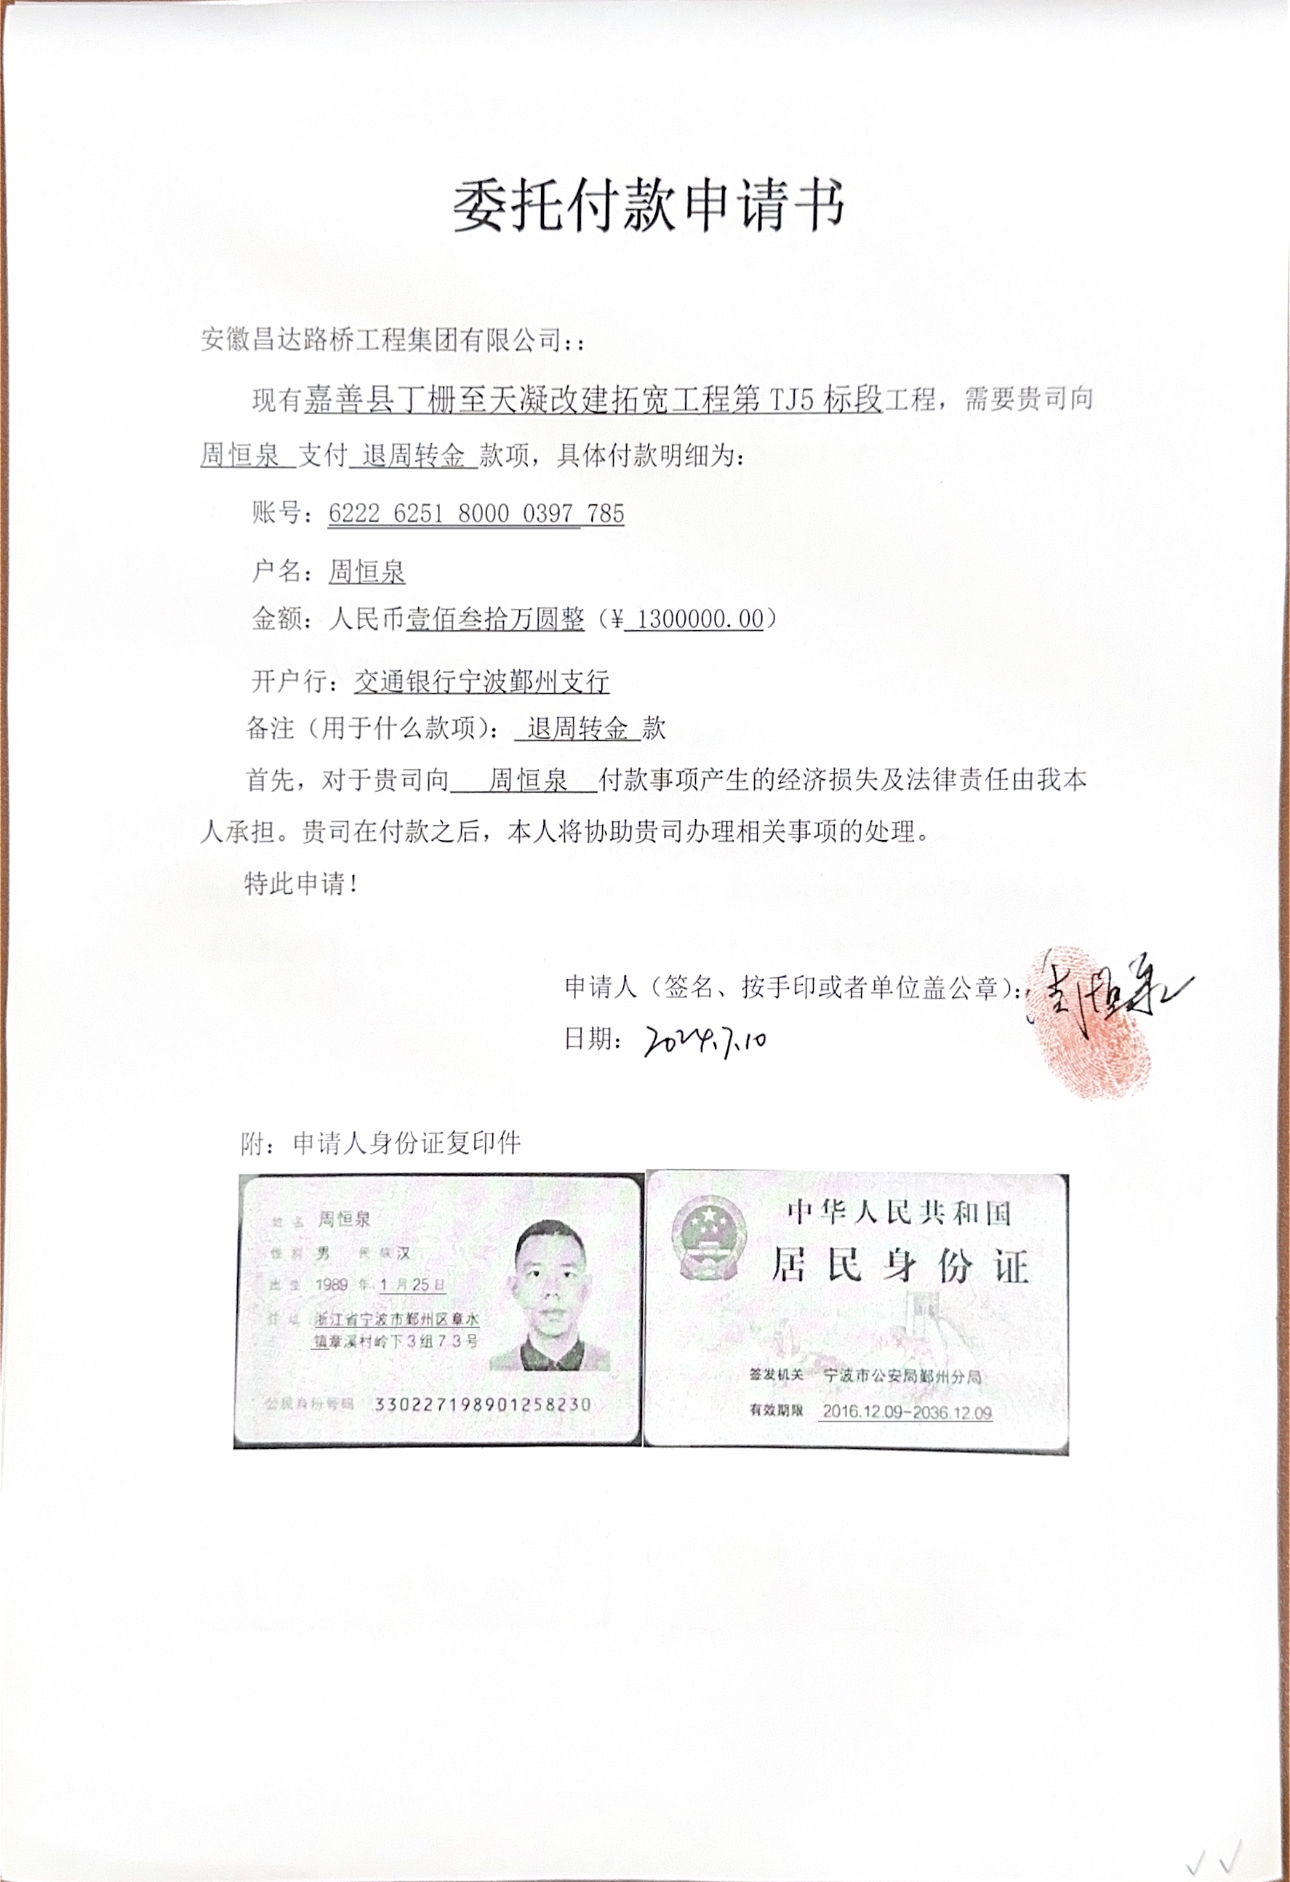 委托付款申请书
安徽昌达路桥工程集团有限公司：：
现有嘉善县丁栅至天凝改建拓宽工程第 TJ5 标段工程，需要贵司向
周恒泉 支付 退周转金 款项，具体付款明细为：
账号：6222 6251 8000 0397 785
户名：周恒泉
金额：人民币壹佰叁拾万圆整（¥ 1300000.00）
开户行：交通银行宁波鄞州支行
备注（用于什么款项）： 退周转金 款
首先，对于贵司向 周恒泉 付款事项产生的经济损失及法律责任由我本
人承担。贵司在付款之后，本人将协助贵司办理相关事项的处理。
特此申请！
申请人（签名、按手印或者单位盖公章）：周恒泉
日期：2024.7.10
附：申请人身份证复印件
姓名 周恒泉
性别 男 民族 汉
出生 1989 年 1 月 25 日
住址 浙江省宁波市鄞州区章水
镇章溪村岭下3组73号
公民身份号码 330227198901258230
中华人民共和国
居民身份证
签发机关 宁波市公安局鄞州分局
有效期限 2016.12.09-2036.12.09